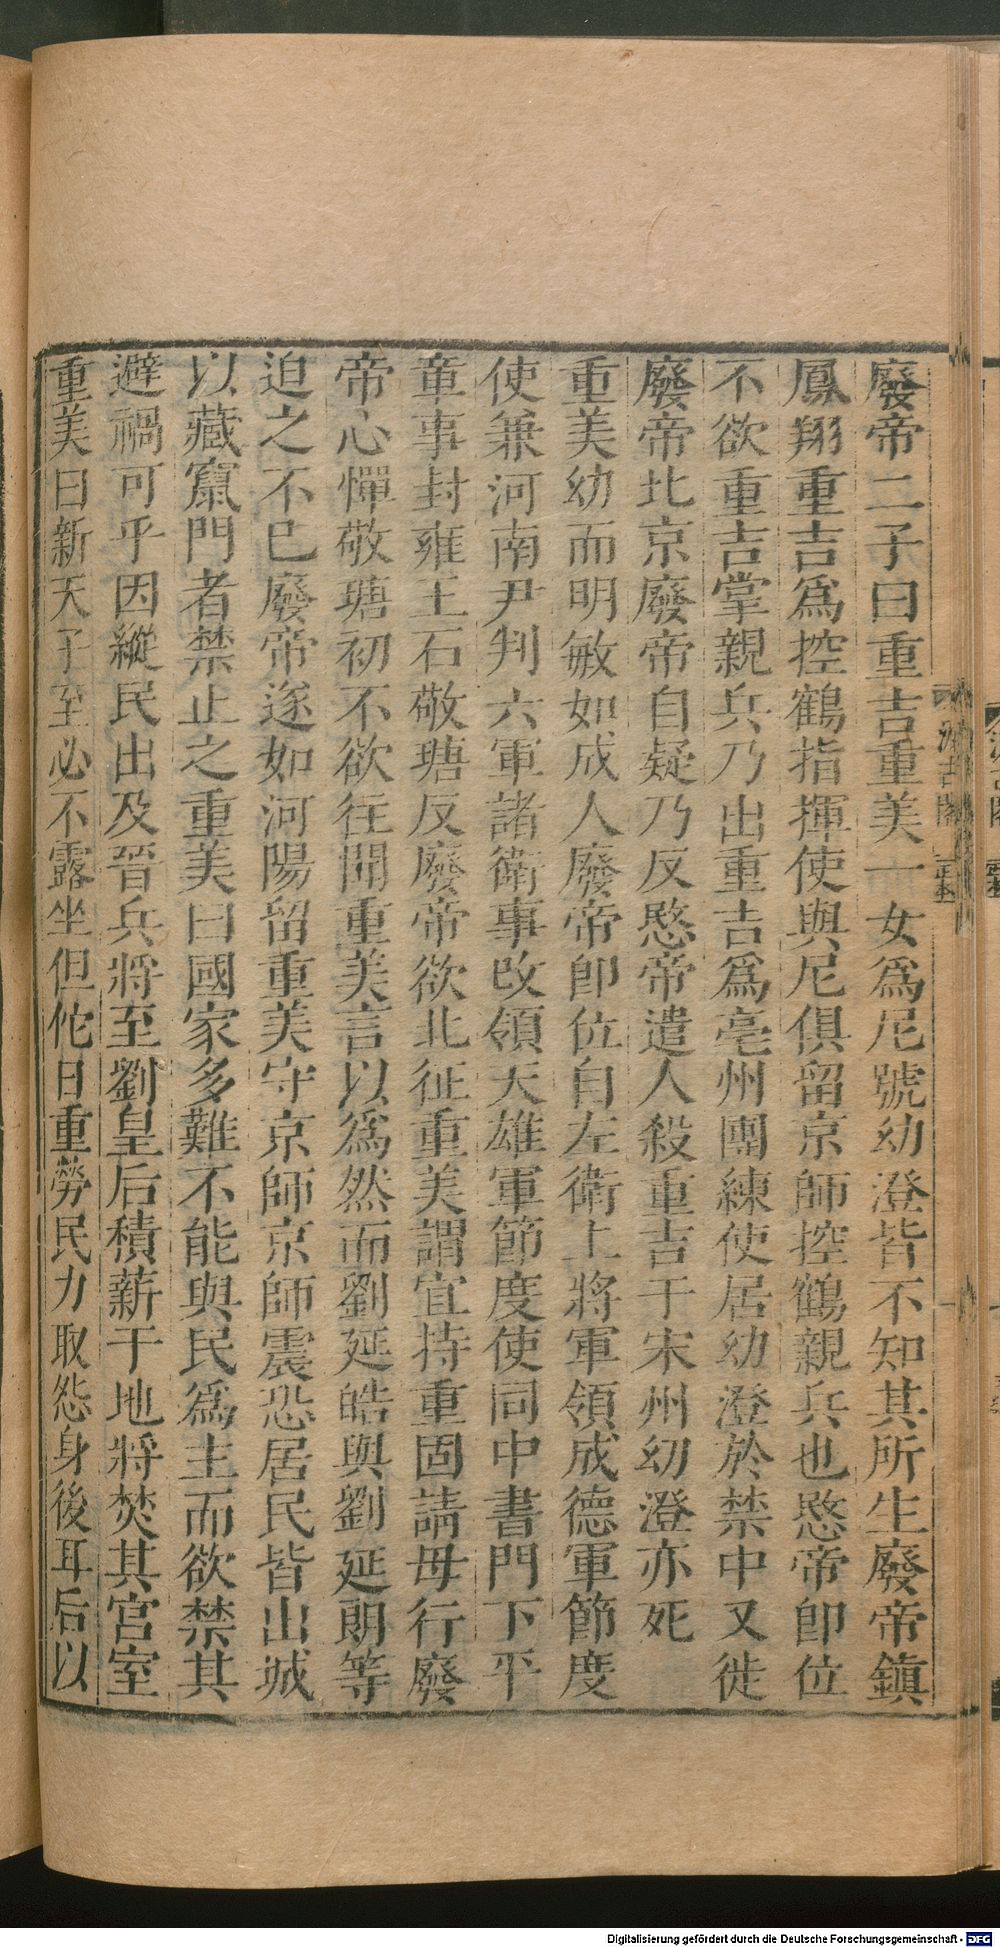 廢帝二子曰重吉重美一女爲尼號幼澄皆不知其所生廢帝鎮
鳳翔重吉爲控鶴指揮使與尼俱留京師控鶴親兵也愍帝卽位
不欲重吉掌親兵乃出重吉爲亳州團練使居幼澄於禁中又徙
廢帝北京廢帝自疑乃反愍帝遣人殺重吉于宋州幼澄亦死
重美幼而明敏如成人廢帝卽位自左衛上將軍領成德軍節度
使兼河南尹判六軍諸衛事改領天雄軍節度使同中書門下平
章事封雍王石敬瑭反廢帝欲北征重美謂宜持重固請毋行廢
帝心憚敬瑭初不欲往聞重美言以爲然而劉延皓與劉延朗等
迫之不已廢帝遂如河陽留重美守京師京師震恐居民皆出城
以藏竄門者禁止之重美曰國家多難不能與民爲主而欲禁其
避禍可乎因縱民出及晉兵將至劉皇后積薪于地將焚其宮室
重美曰新天子至必不露坐但佗日重勞民力取怨身後耳后以
Digitalisierung gefördert durch die Deutsche Forschungsgemeinschaft - DFG